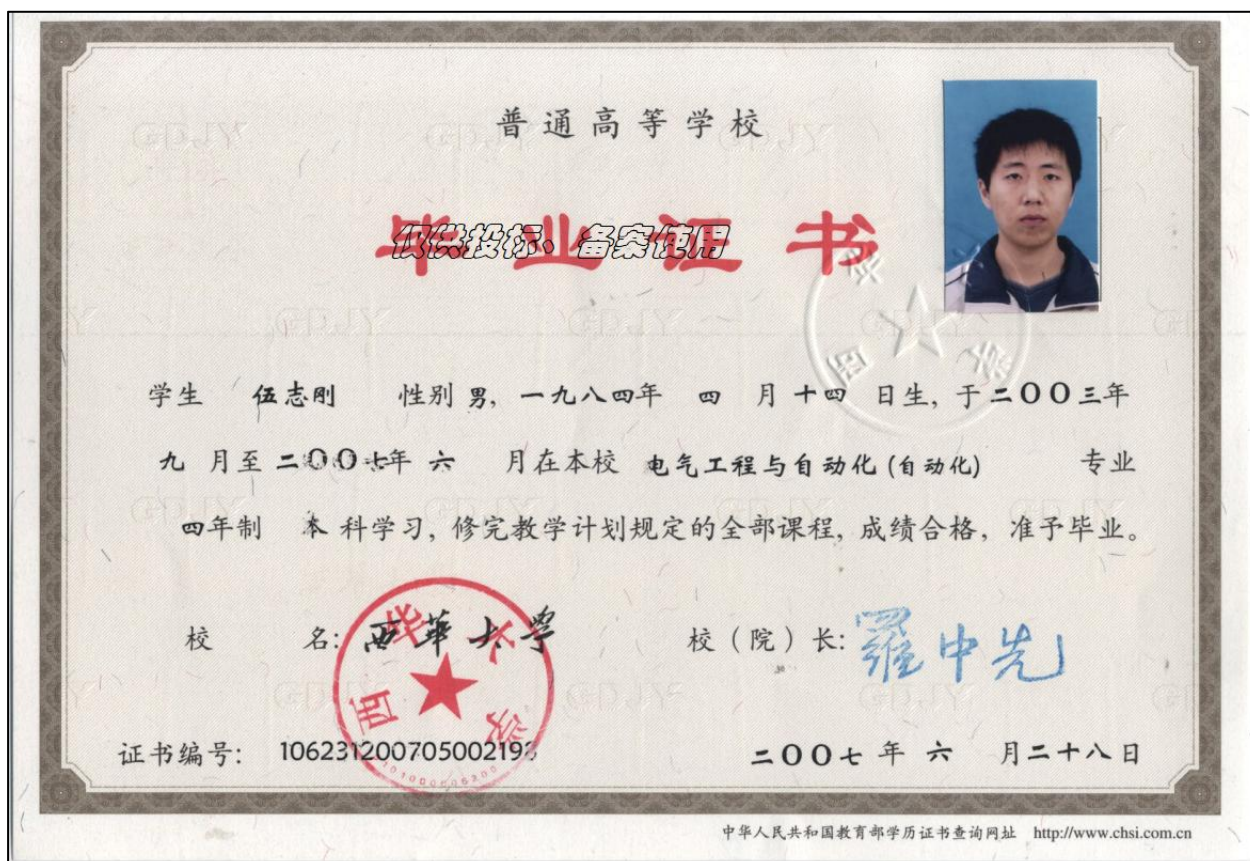 普通高等学校
毕业证书
仅供投标、备案使用
学生 伍志刚 性别 男, 一九八四年 四 月 十四 日生, 于 二〇〇三年
九 月至 二〇〇七年 六 月在本校 电气工程与自动化(自动化) 专业
四年制 本 科学习, 修完教学计划规定的全部课程, 成绩合格, 准予毕业。
校 名: 西華大学
校(院)长: 羅中先
西华大学
证书编号: 106231200705002193
二〇〇七 年 六 月二十八日
中华人民共和国教育部学历证书查询网址 http://www.chsi.com.cn
GDJY